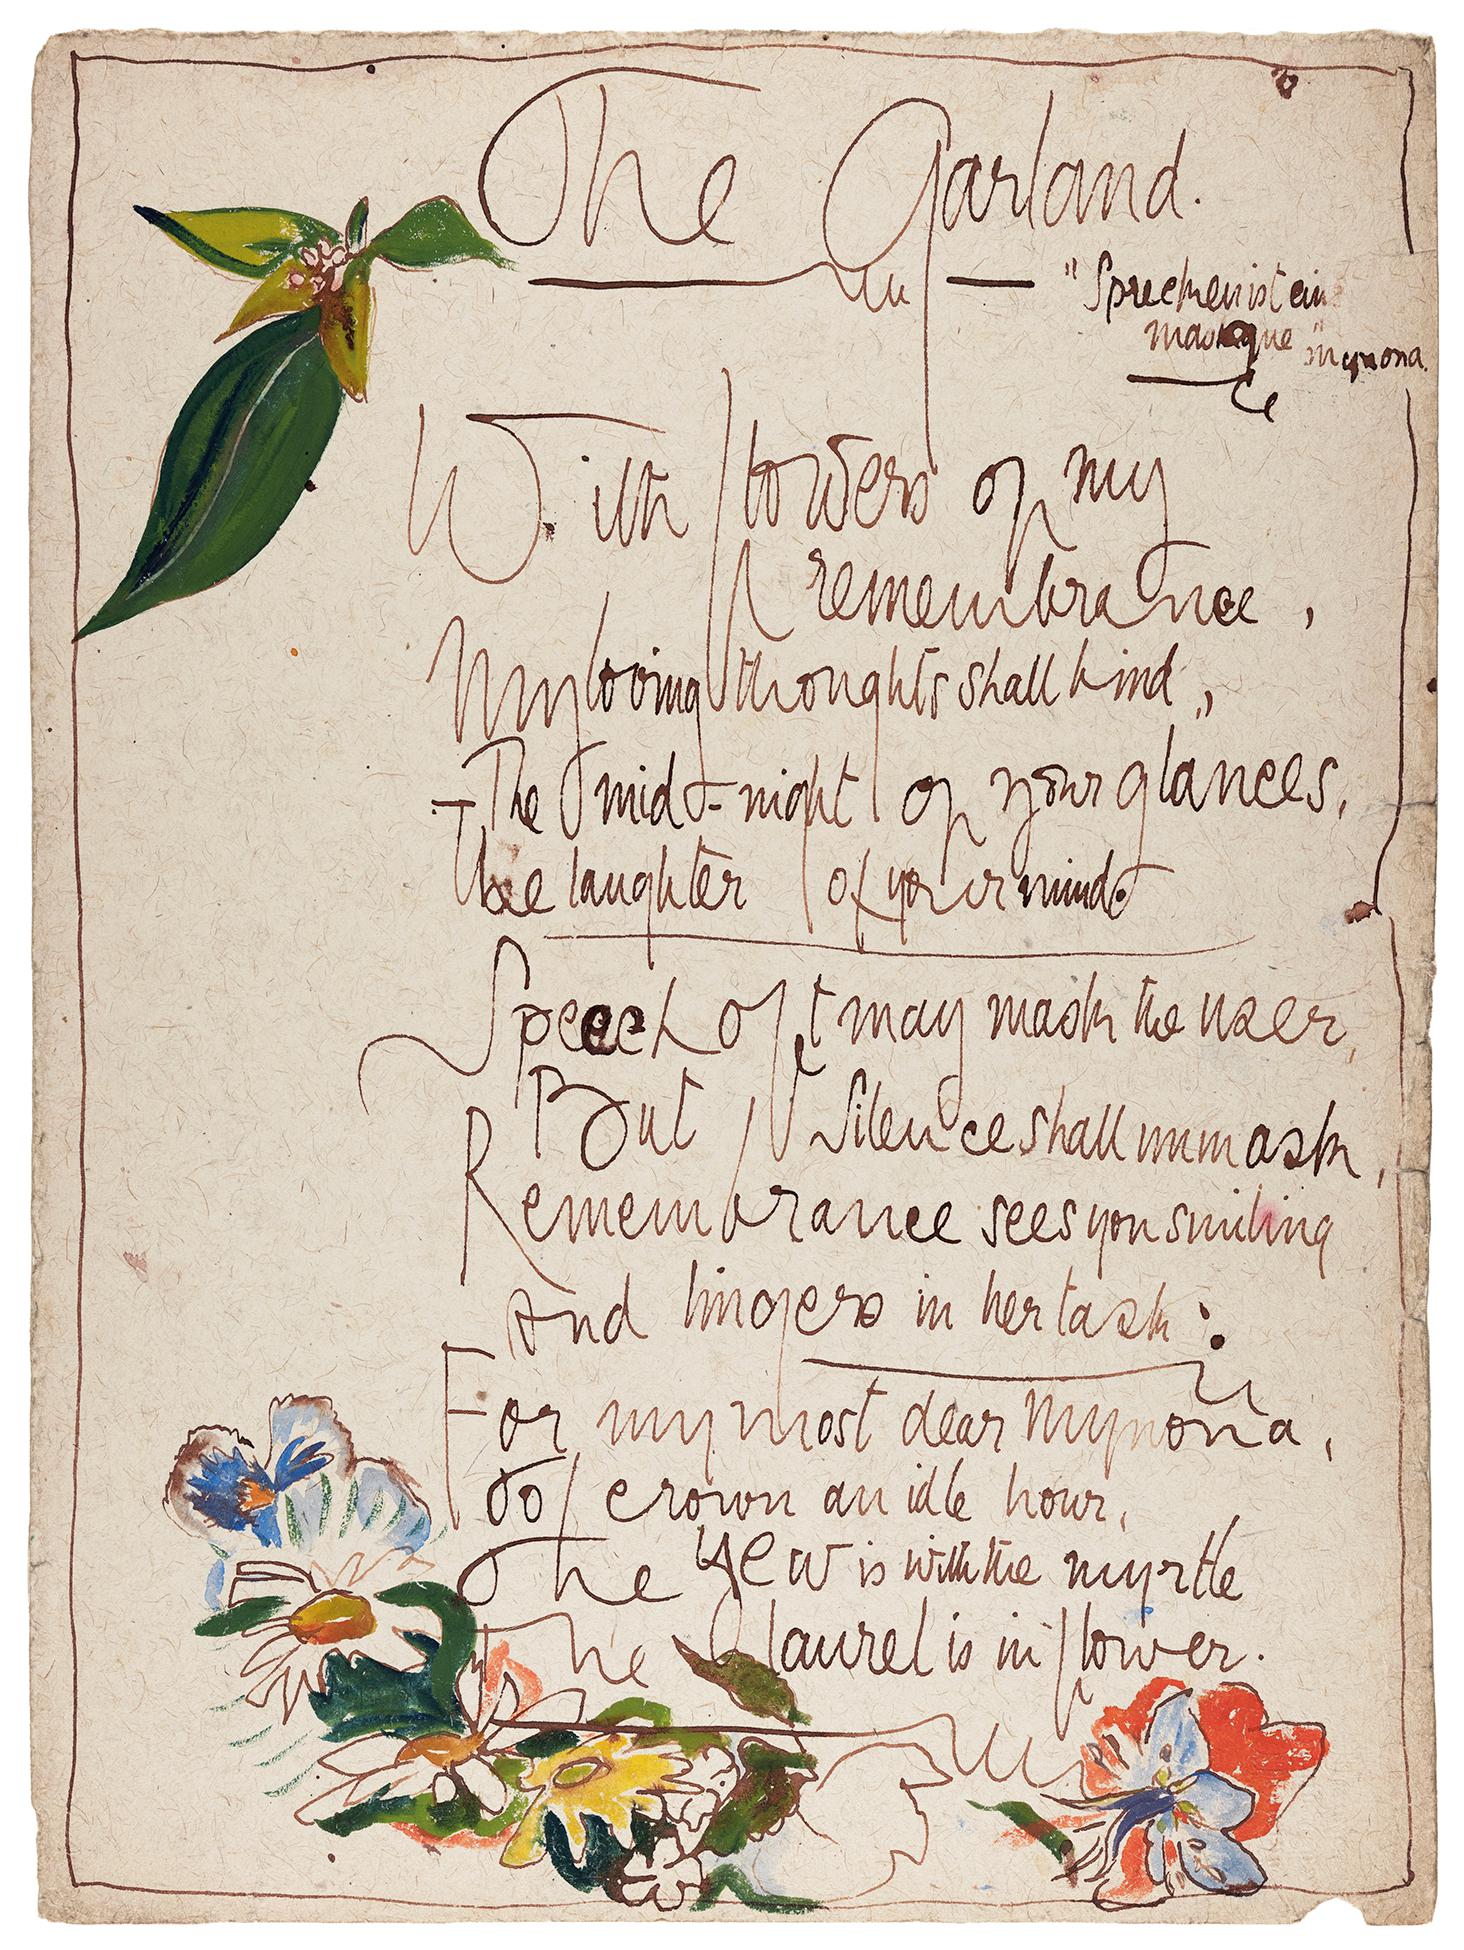 The Garland.
"Sprechen ist ein
maskque" Mynona.
With flowers of my
remembrance,
My loving thoughts shall bind,
The mid-night of your glances,
The laughter of your mind.
Speech oft may mask the user,
But Silence shall unmask,
Remembrance sees you smiling
And lingers in her task:
For my most dear Mynona,
To crown an idle hour,
The Yew is with the myrtle
The laurel is in flower.